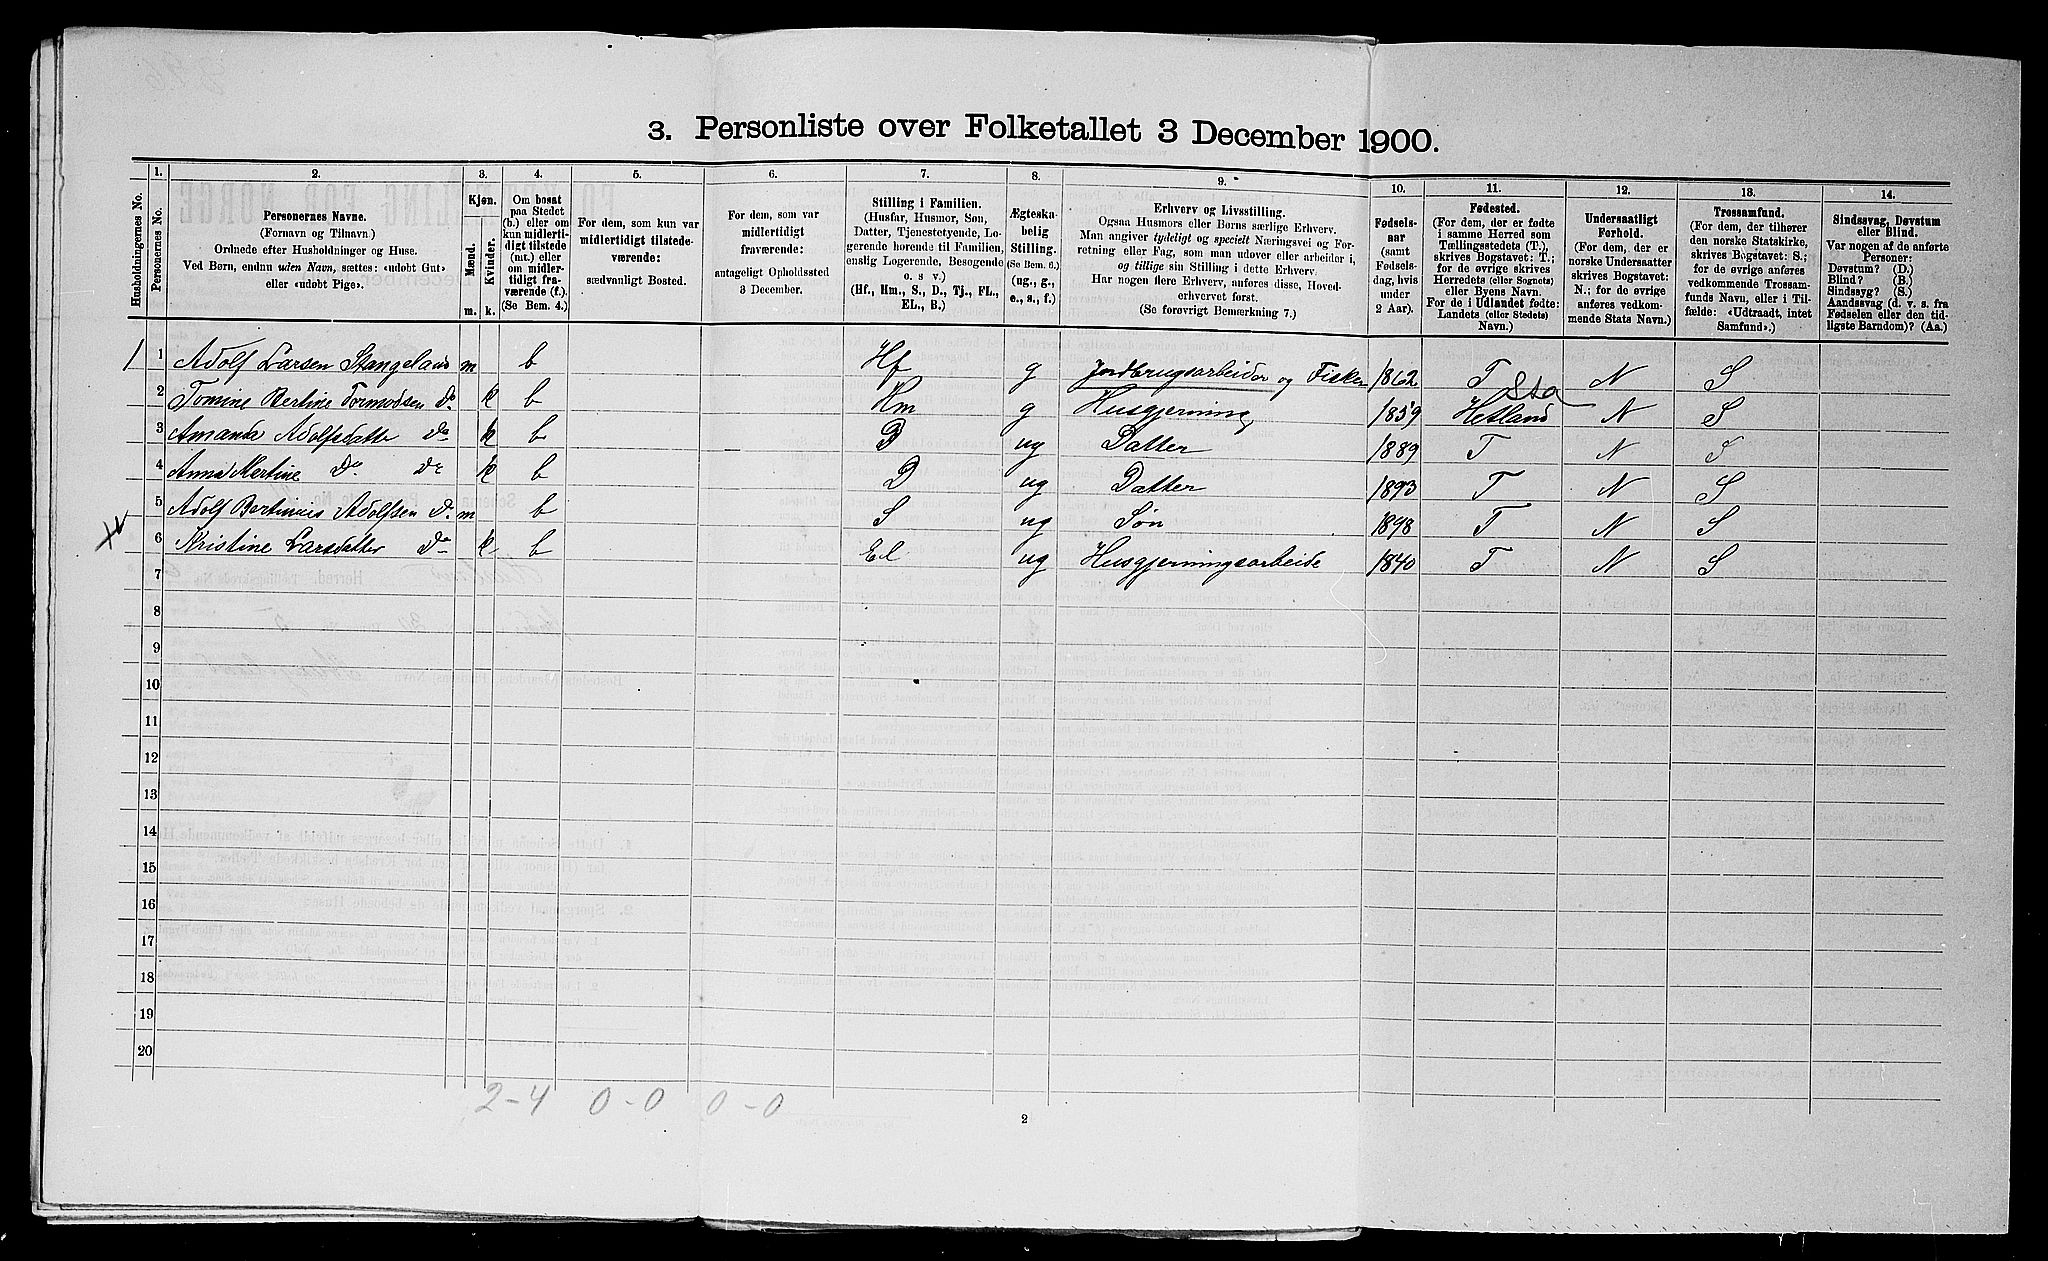 3. Personliste over Folketallet 3 December 1900.
Husholdningernes No.
1. Personernes No.
2. Personernes Navne.
(Fornavn og Tilnavn.)
Ordnede efter Husholdninger og Huse.
Ved Børn, endnu uden Navn, sættes: «udøbt Gut»
eller «udøbt Pige».
3. Kjøn.
Mænd. Kvinder.
m. k.
4.
Om bosat
paa Stedet
(b.) eller om
kun midlerti-
digt tilstede
(mt.) eller
om midler-
tidigt fra-
værende (f.).
(Se Bem. 4.)
5.
For dem, som kun var
midlertidigt tilstede-
værende:
sædvanligt Bosted.
6.
For dem, som var
midlertidigt
fraværende:
antageligt Opholdssted
3 December.
7.
Stilling i Familien.
(Husfar, Husmor, Søn,
Datter, Tjenestetyende, Lo-
gerende hørende til Familien,
enslig Logerende, Besøgende
o. s v.)
(Hf., Hm., S., D., Tj., FL.,
EL., B.)
8.
Ægteska-
belig
Stilling.
(Se Bem. 6.)
(ug., g.,
e., s., f.)
9.
Erhverv og Livsstilling.
Ogsaa Husmors eller Børns særlige Erhverv.
Man angiver tydeligt og specielt Næringsvei og For-
retning eller Fag, som man udøver eller arbeider i,
og tillige sin Stilling i dette Erhverv.
Har nogen flere Erhverv, anføres disse, Hoved-
erhvervet først.
(Se forøvrigt Bemærkning 7.)
10.
Fødsels-
aar
(samt
Fødsels-
dag, hvis
under
2 Aar).
11.
Fødested.
(For dem, der er fødte
i samme Herred som
Tællingsstedets (T.),
skrives Bogstavet: T.;
for de øvrige skrives
Herredets (eller Sognets)
eller Byens Navn.
For de i Udlandet fødte:
Landets (eller Stedets)
Navn.)
12.
Undersaatligt
Forhold.
(For dem, der er
norske Undersaatter
skrives Bogstavet:
N.; for de øvrige
anføres vedkom-
mende Stats Navn.)
13.
Trossamfund.
(For dem, der tilhører
den norske Statskirke,
skrives Bogstavet: S.;
for de øvrige anføres
vedkommende Trossam-
funds Navn, eller i Til-
fælde: «Udtraadt, intet
Samfund».)
14.
Sindssvag, Døvstum
eller Blind.
Var nogen af de anførte
Personer:
Døvstum? (D.)
Blind? (B.)
Sindssyg? (S.)
Aandssvag (d. v. s. fra
Fødselen eller den tid-
ligste Barndom)? (Aa.)
1 1 Adolf Larsen Stangeland m b Hf g Jordbrugsarbeider og Fisker 1862 T N S
2 Tomine Bertine Tormodsen Do. k b Hm g Husgjerning 1859 Hetland Sta N S
3 Amanda Adolfsdatter Do k b D ug Datter 1889 T N S
4 Anna Mertine Do. Do k b D ug Datter 1893 T N S
5 Adolf Bertinius Adolfsen Do. m b S ug Søn 1898 T N S
6 Kristine Larsdatter Do k b El ug Husgjerningsarbeide 1840 T N S
7
8
9
10
11
12
13
14
15
16
17
18
19
20
2-4 0-0 0-0
2